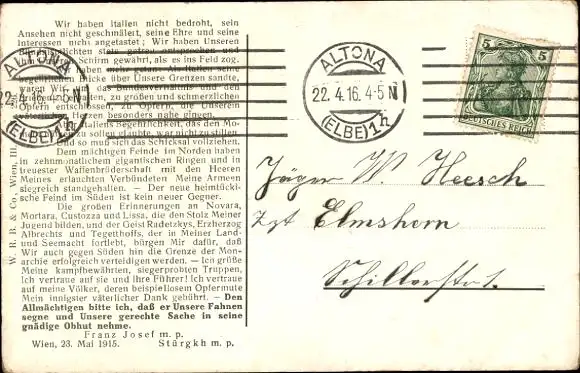 Wir haben Italien nicht bedroht, sein
Ansehen nicht geschmälert, seine Ehre und seine
Interessen nicht angetastet; Wir haben Unseren
Bündnispflichten stets getreu entsprochen und
ihm Unseren Schirm gewährt, als es ins Feld zog.
haben mehr getan: Als Italien seine
begehrlichen Blicke über Unsere Grenzen sandte,
waren Wir, um das Bundesverhältnis und den
zu großen und schmerzlichen
Opfern entschlossen, zu Opfern, die Unserem
Herzen besonders nahe gingen.
Aber Italiens Begehrlichkeit, das den
zu sollen glaubte, war nicht zu stillen
Und so muß sich das Schicksal vollziehen.
Dem mächtigen Feinde im Norden haben
in zehnmonatlichem gigantischen Ringen und in
treuester Waffenbrüderschaft mit den Heeren
Meines erlauchten Verbündeten Meine Armeen
siegreich standgehalten. — Der neue heimtücki-
sche Feind im Süden ist kein neuer Gegner.
Die großen Erinnerungen an Novara,
Mortara, Custozza und Lissa, die den Stolz Meiner
Jugend bilden, und der Geist Radetzkys, Erzherzog
Albrechts und Tegetthoffs, der in Meiner Land-
und Seemacht fortlebt, bürgen Mir dafür, daß
Wir auch gegen Süden hin die Grenze der Mon-
archie erfolgreich verteidigen werden. — Ich größe
Meine kampfbewährten, siegerprobten Truppen,
Ich vertraue auf sie und ihre Führer! Ich vertraue
auf meine Völker, deren beispiellosem Opfermute
Mein innigster väterlicher Dank gebührt. — Den
Allmächtigen bitte ich, daß er Unsere Fahnen
segne und Unsere gerechte Sache in seine
gnädige Obhut nehme.
Franz Josef m. p.
Wien, 23. Mai 1915. Stürgkh m. p.
W. R. B. & Co., Wien, III.
ALTONA
22.4.16. 4-5 N
(ELBE) 1h
ALTONA
22.4.16. 4-5 N
(ELBE) 1h
5 5
DEUTSCHES REICH
Jäger W. Heesch
Zgt Elmshorn
Schillerstr 1.